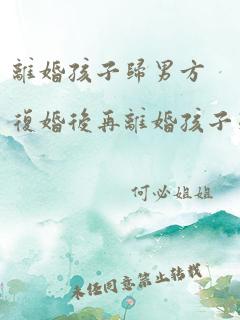 離婚孩子歸男方
復婚後再離婚孩子
何必姐姐
未经同意禁止转载